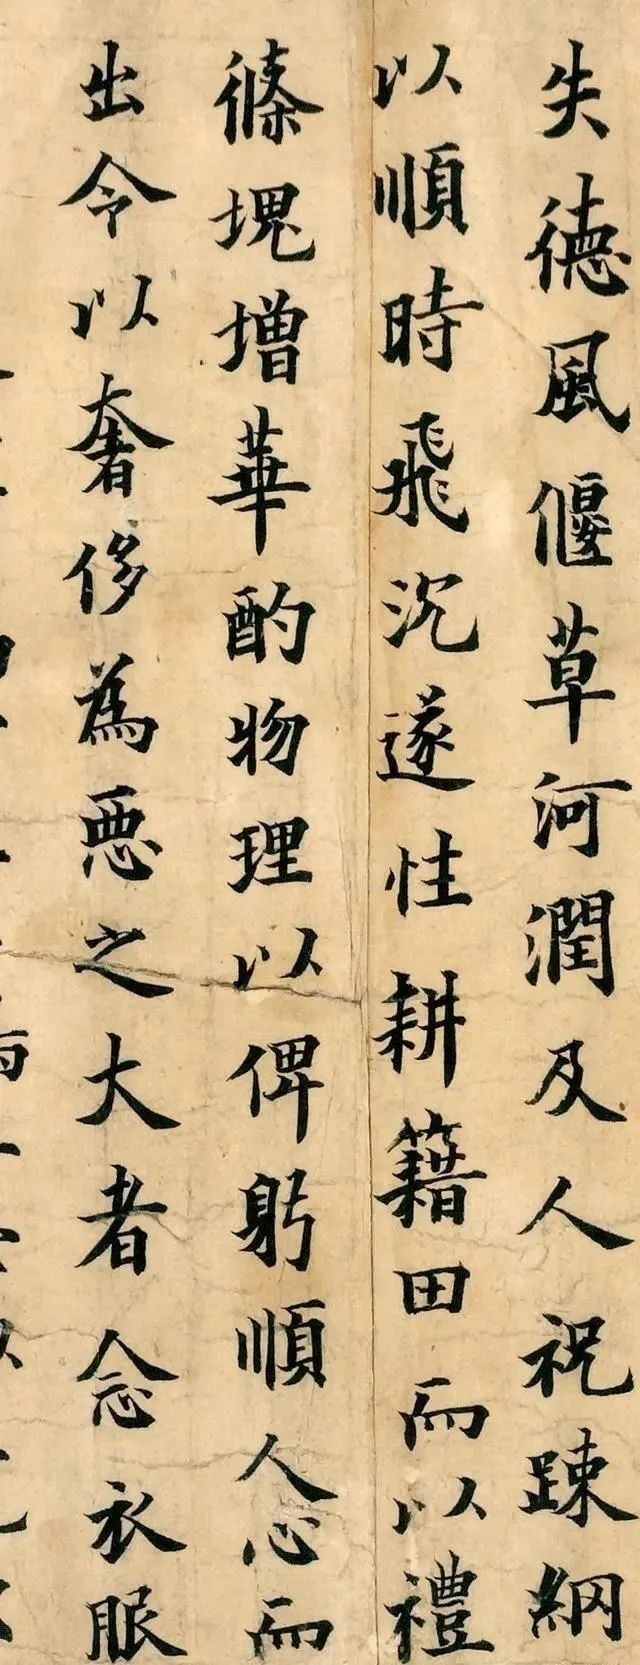 失德風偃草河潤及人祝踈網
以順時飛沉遂性耕籍田而以禮
條塊增華酌物理以俾躬順人心而
出令以奢侈為悪之大者念衣服